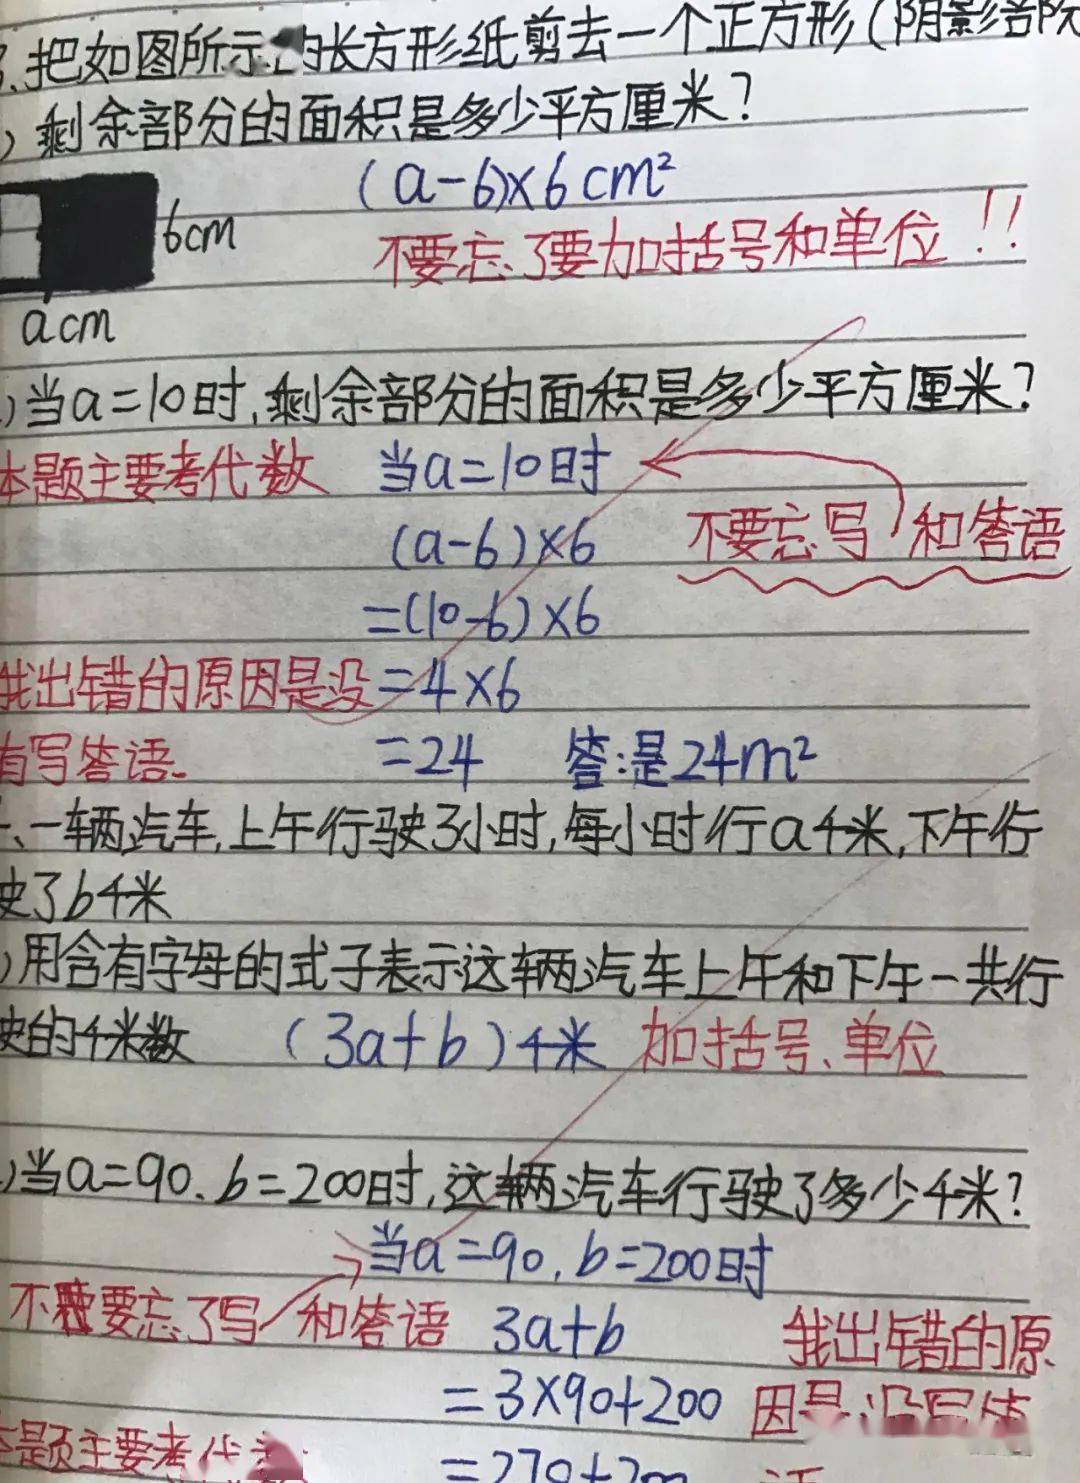 把如图所示的长方形纸剪去一个正方形(阴影部
)剩余部分的面积是多少平方厘米?
(a-6)×6cm²
6cm
不要忘了要加括号和单位!!
acm
)当a=10时,剩余部分的面积是多少平方厘米?
本题主要考代数 当a=10时
(a-6)×6 不要忘写 和答语
=(10-6)×6
我出错的原因是没 =4×6
有写答语. =24 答:是24m²
、一辆汽车,上午行驶3小时,每小时行a千米,下午行
驶了b千米
)用含有字母的式子表示这辆汽车上午和下午一共行
驶的千米数 (3a+b)千米 加括号、单位
)当a=90、b=200时,这辆汽车行驶了多少千米?
当a=90,b=200时
不要忘了写 和答语 3a+b 我出错的原
=3×90+200 因是没写答
本题主要考代
=270+200 语